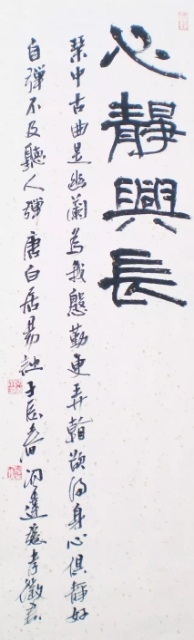 心靜興長
琴中古曲是幽蘭為我慇勤更弄看欲得身心俱靜好
自彈不及聽人彈唐白居易